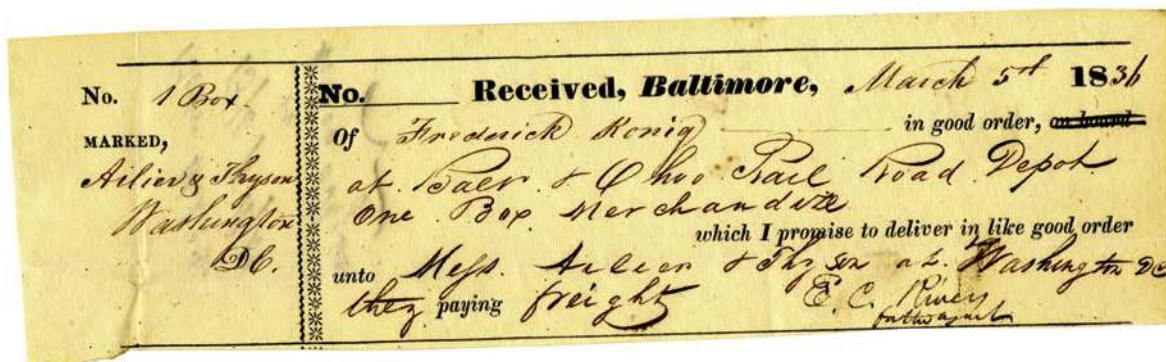 No. 1 Box.
MARKED,
Ailier & Thyson
Washington
DC.
No. Received, Baltimore, March 5th 1836
Of Frederick Konig in good order, on board
at Baer & Ohio Rail Road Depot
One Box Merchandize
which I promise to deliver in like good order
unto Mess. Ailier & Thyson at Washington DC
they paying freight E. C.
for the agent